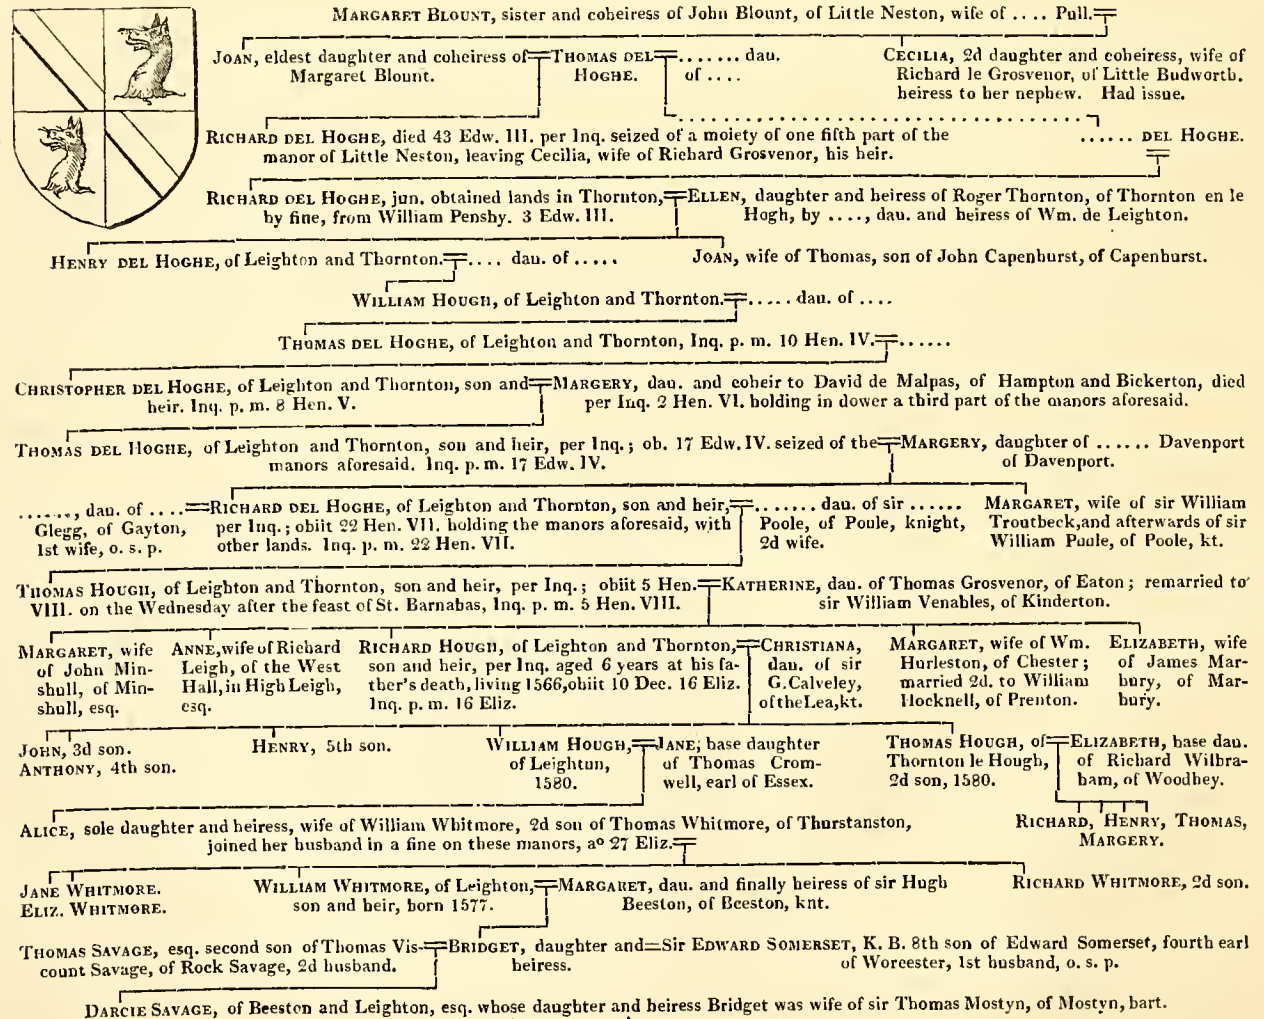 MARGARET BLOUNT, sister and coheiress of John Blount, of Little Neston, wife of .... Pull.
JOAN, eldest daughter and coheiress of
Margaret Blount.
THOMAS DEL
HOGHE.
....... dau.
of ....
CECILIA, 2d daughter and coheiress, wife of
Richard le Grosvenor, of Little Budworth.
heiress to her nephew. Had issue.
RICHARD DEL HOGHE, died 43 Edw. III. per Inq. seized of a moiety of one fifth part of the
manor of Little Neston, leaving Cecilia, wife of Richard Grosvenor, his heir.
...... DEL HOGHE.
RICHARD DEL HOGHE, jun. obtained lands in Thornton,
by fine, from William Pensby. 3 Edw. III.
ELLEN, daughter and heiress of Roger Thornton, of Thornton en le
Hogh, by ...., dau. and heiress of Wm. de Leighton.
HENRY DEL HOGHE, of Leighton and Thornton.
.... dau. of .....
JOAN, wife of Thomas, son of John Capenhurst, of Capenhurst.
WILLIAM HOUGH, of Leighton and Thornton.
..... dau. of ....
THOMAS DEL HOGHE, of Leighton and Thornton, Inq. p. m. 10 Hen. IV.
......
CHRISTOPHER DEL HOGHE, of Leighton and Thornton, son and
heir. Inq. p. m. 8 Hen. V.
MARGERY, dau. and coheir to David de Malpas, of Hampton and Bickerton, died
per Inq. 2 Hen. VI. holding in dower a third part of the manors aforesaid.
THOMAS DEL HOGHE, of Leighton and Thornton, son and heir, per Inq.; ob. 17 Edw. IV. seized of the
manors aforesaid. Inq. p. m. 17 Edw. IV.
MARGERY, daughter of ...... Davenport
of Davenport.
......, dau. of ....
Glegg, of Gayton,
1st wife, o. s. p.
RICHARD DEL HOGHE, of Leighton and Thornton, son and heir,
per Inq.; obiit 22 Hen. VII. holding the manors aforesaid, with
other lands. Inq. p. m. 22 Hen. VII.
....... dau. of sir ......
Poole, of Poule, knight,
2d wife.
MARGARET, wife of sir William
Troutbeck,and afterwards of sir
William Puule, of Poole, kt.
THOMAS HOUGH, of Leighton and Thornton, son and heir, per Inq.; obiit 5 Hen.
VIII. on the Wednesday after the feast of St. Barnabas, Inq. p. m. 5 Hen. VIII.
KATHERINE, dau. of Thomas Grosvenor, of Eaton; remarried to
sir William Venables, of Kinderton.
MARGARET, wife
of John Min-
shull, of Min-
shull, esq.
ANNE, wife of Richard
Leigh, of the West
Hall, in High Leigh,
esq.
RICHARD HOUGH, of Leighton and Thornton,
son and heir, per Inq. aged 6 years at his fa-
ther's death, living 1566, obiit 10 Dec. 16 Eliz.
Inq. p. m. 16 Eliz.
CHRISTIANA,
dau. of sir
G. Calveley,
of the Lea, kt.
MARGARET, wife of Wm.
Hurleston, of Chester;
married 2d. to William
Hocknell, of Prenton.
ELIZABETH, wife
of James Mar-
bury, of Mar-
bury.
JOHN, 3d son.
ANTHONY, 4th son.
HENRY, 5th son.
WILLIAM HOUGH,
of Leighton,
1580.
JANE, base daughter
of Thomas Crom-
well, earl of Essex.
THOMAS HOUGH, of
Thornton le Hough,
2d son, 1580.
ELIZABETH, base dau.
of Richard Wilbra-
ham, of Woodhey.
ALICE, sole daughter and heiress, wife of William Whitmore, 2d son of Thomas Whitmore, of Thurstanston,
joined her husband in a fine on these manors, aº 27 Eliz.
RICHARD, HENRY, THOMAS,
MARGERY.
JANE WHITMORE.
ELIZ. WHITMORE.
WILLIAM WHITMORE, of Leighton,
son and heir, born 1577.
MARGARET, dau. and finally heiress of sir Hugh
Beeston, of Beeston, knt.
RICHARD WHITMORE, 2d son.
THOMAS SAVAGE, esq. second son of Thomas Vis-
count Savage, of Rock Savage, 2d husband.
BRIDGET, daughter and
heiress.
Sir EDWARD SOMERSET, K. B. 8th son of Edward Somerset, fourth earl
of Worcester, 1st husband, o. s. p.
DARCIE SAVAGE, of Beeston and Leighton, esq. whose daughter and heiress Bridget was wife of sir Thomas Mostyn, of Mostyn, bart.